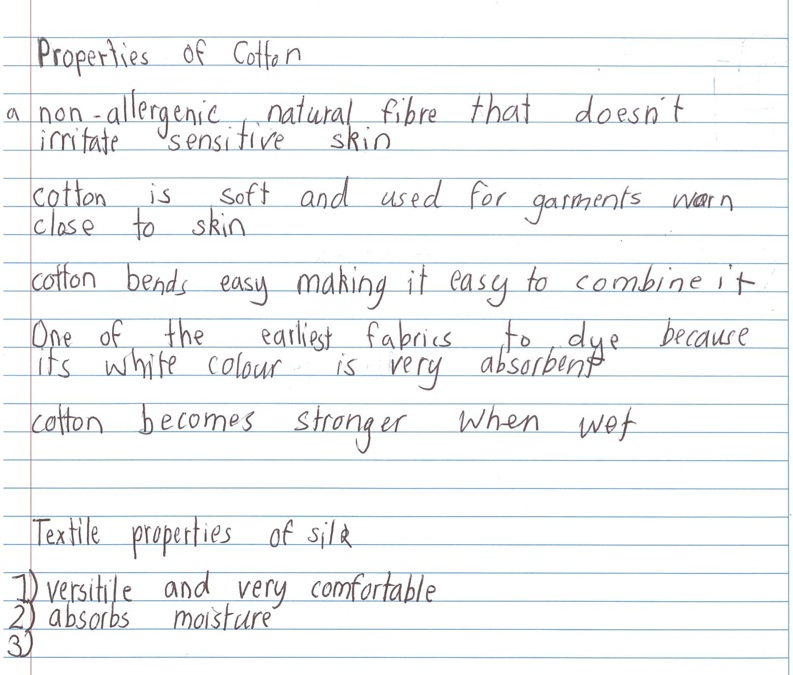 Properties of Cotton
a non-allergenic natural fibre that doesn't
irritate sensitive skin
cotton is soft and used for garments warn
close to skin
cotton bends easy making it easy to combine it
One of the earliest fabrics to dye because
its white colour is very absorbent
cotton becomes stronger when wet
Textile properties of silk
1) versitile and very comfortable
2) absorbs moisture
3)